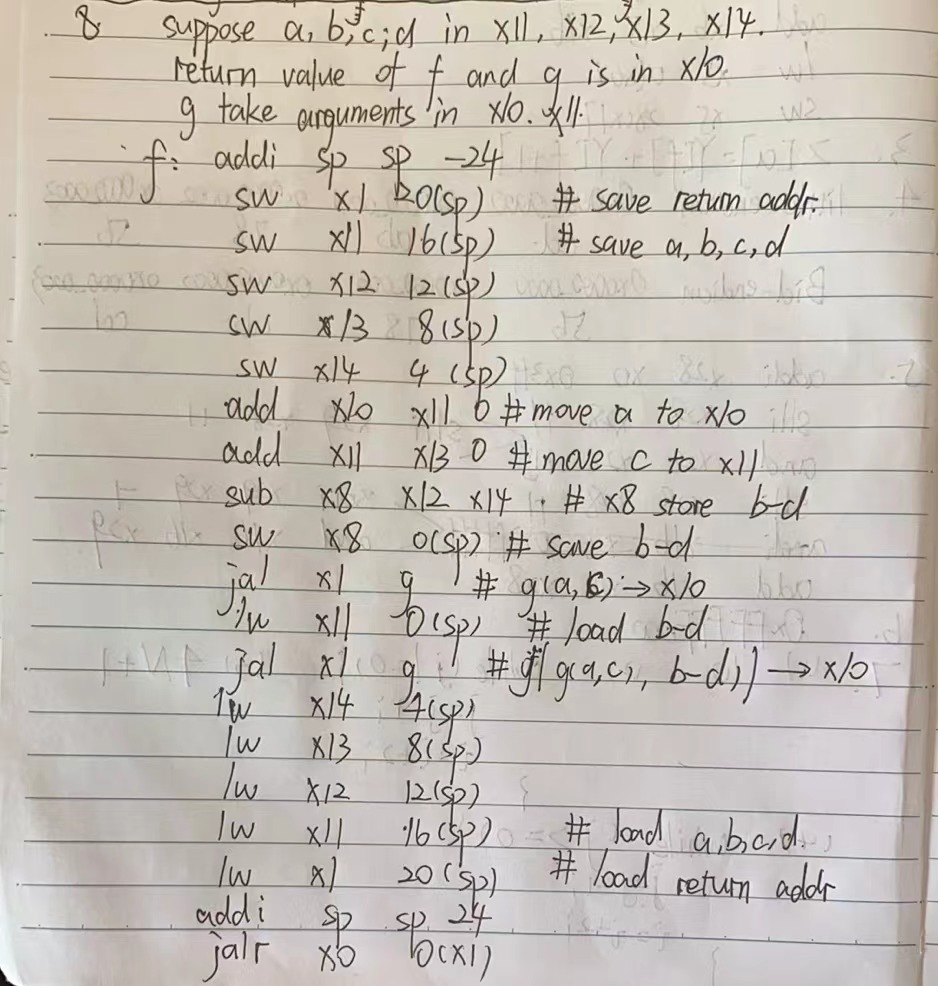 8 suppose a, b, c, d in x11, x12, x13, x14.
return value of f and g is in x10
g take arguments in x10. x11.
f: addi sp sp -24
sw x1 20(sp) # save return addr.
sw x11 16(sp) # save a, b, c, d
sw x12 12(sp)
sw x13 8(sp)
sw x14 4(sp)
add x10 x11 0 # move a to x10
add x11 x13 0 # move c to x11
sub x8 x12 x14 # x8 store b-d
sw x8 0(sp) # save b-d
jal x1 g # g(a, c) → x10
lw x11 0(sp) # load b-d
jal x1 g # g(g(a,c), b-d) → x10
lw x14 4(sp)
lw x13 8(sp)
lw x12 12(sp)
lw x11 16(sp) # load a,b,c,d.
lw x1 20(sp) # load return addr
addi sp sp 24
jalr x0 0(x1)